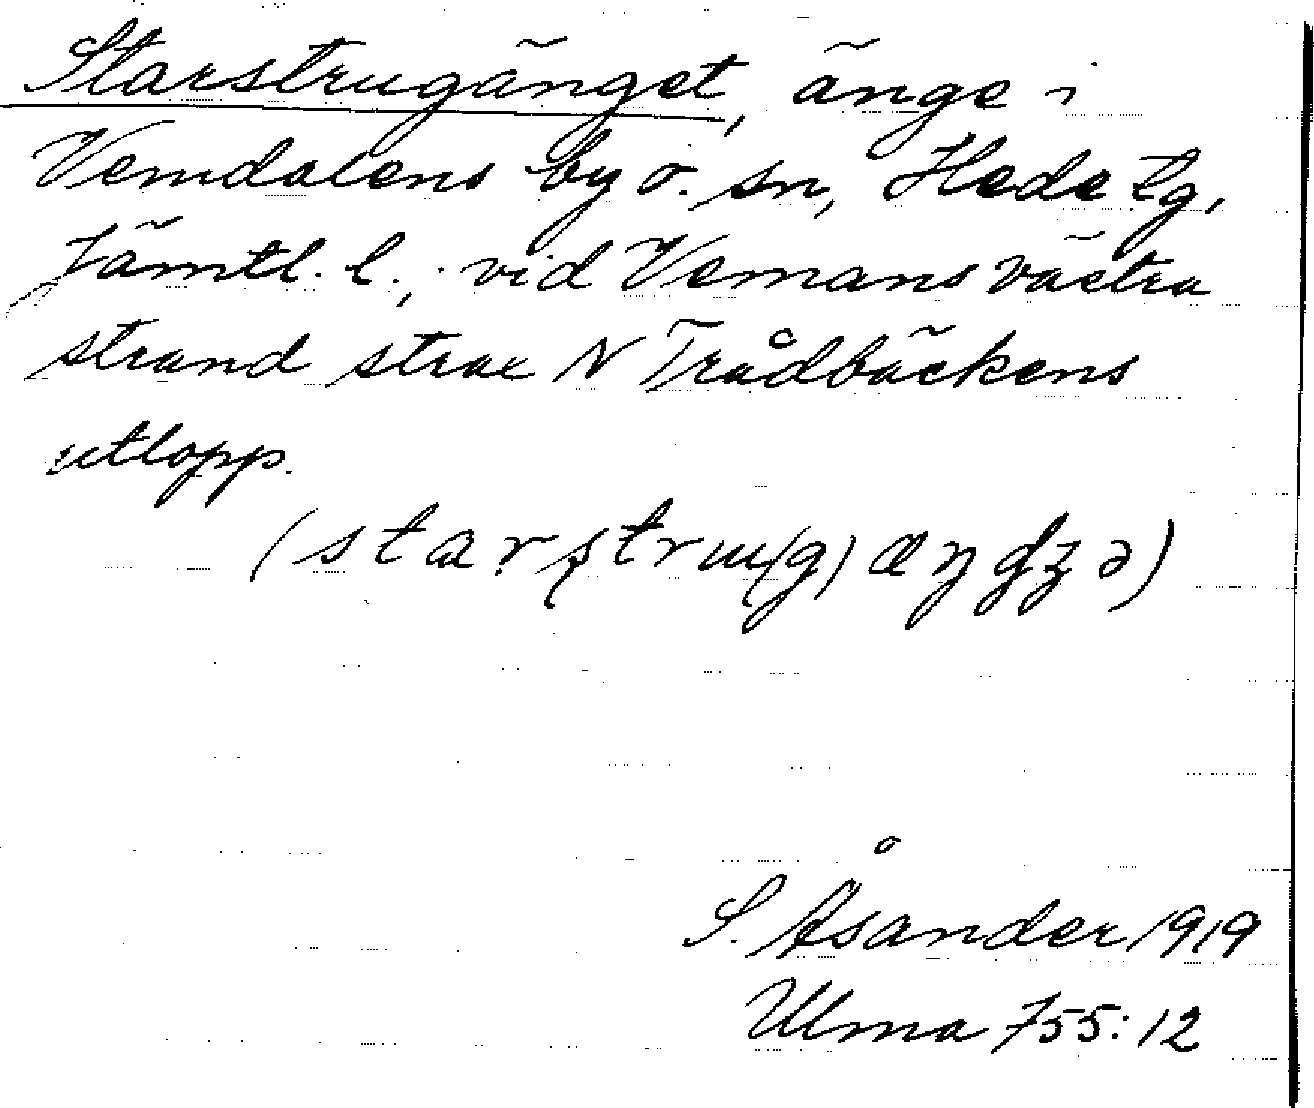 Starstrugänget, änge i
Vemdalens by o. sn, Hede tg,
Jämtl. l., vid Vemans västra
strand strax N Trådbäckens
utlopp.
(starstru(g)æŋgʒə)
S. Åsander 1919
Ulma 755:12